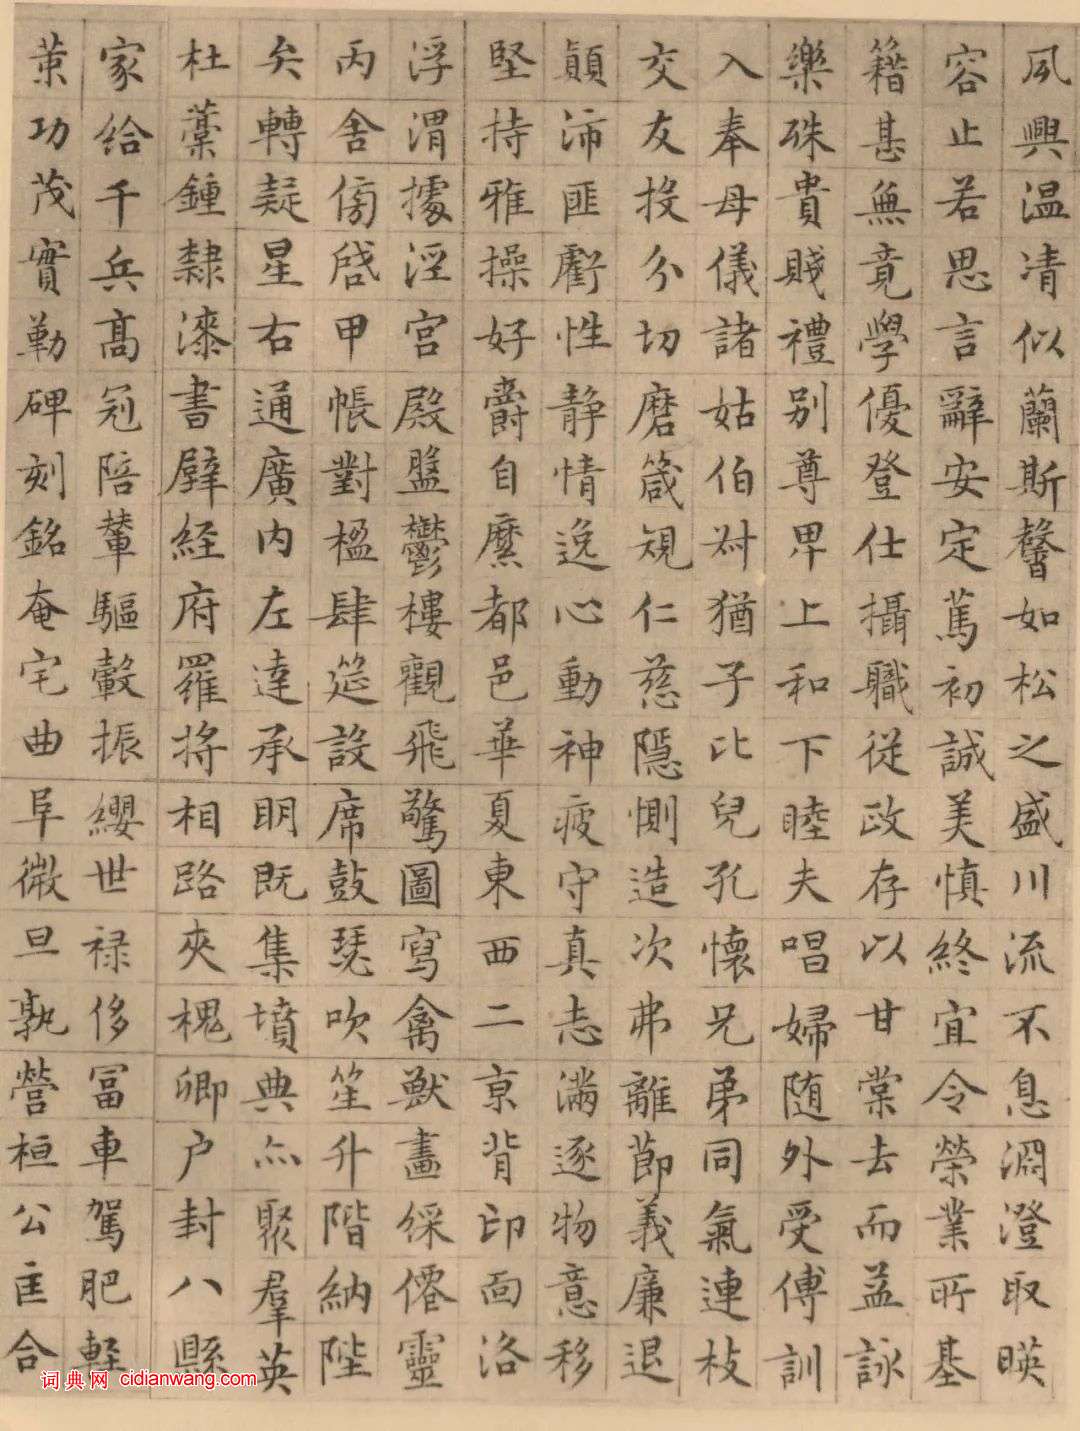 夙興温凊似蘭斯馨如松之盛川流不息淵澄取暎
容止若思言辭安定篤初誠美慎終宜令榮業所基
籍甚無竟學優登仕攝職從政存以甘棠去而益詠
樂殊貴賤禮别尊卑上和下睦夫唱婦随外受傅訓
入奉母儀諸姑伯叔猶子比兒孔懷兄弟同氣連枝
交友投分切磨箴規仁慈隱惻造次弗離節義廉退
顛沛匪虧性静情逸心動神疲守真志滿逐物意移
堅持雅操好爵自縻都邑華夏東西二京背邙面洛
浮渭據涇宫殿盤鬱樓觀飛驚圖寫禽獸畫綵僊靈
丙舍傍啓甲帳對楹肆筵設席鼓瑟吹笙升階納陛
弁轉疑星右通廣内左達承明既集墳典亦聚羣英
杜稾鍾隸漆書壁経府羅将相路夾槐卿户封八縣
家給千兵高冠陪輦驅轂振纓世禄侈富車駕肥軽
策功茂實勒碑刻銘奄宅曲阜微旦孰營桓公匡合
词典网 cidianwang.com